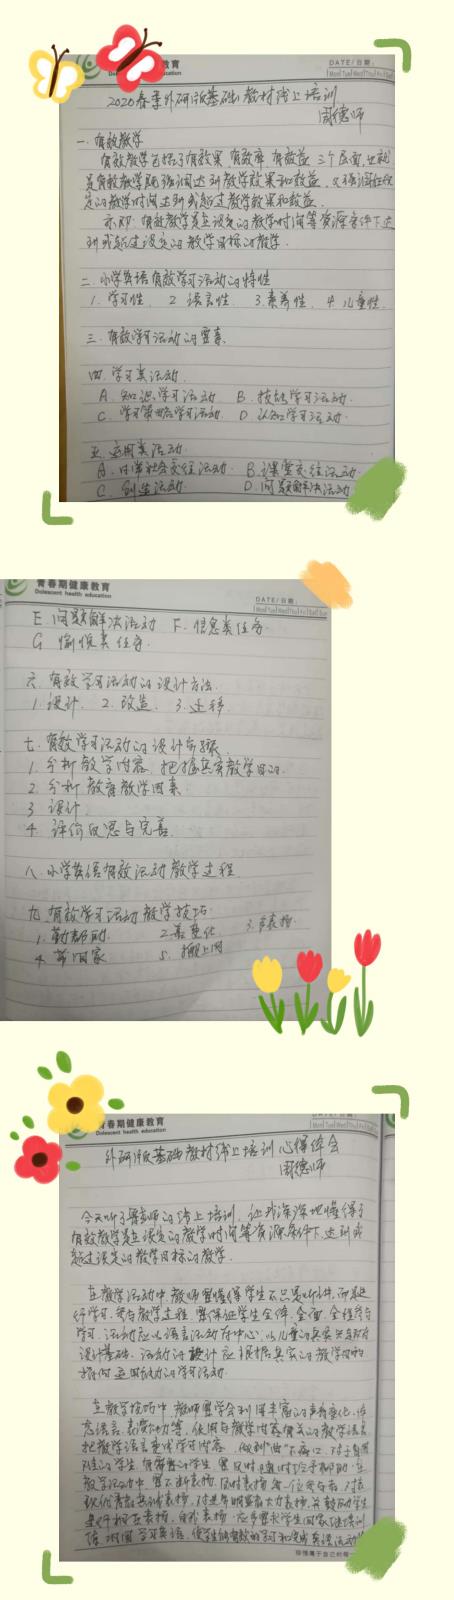 青春期健康教育
Dolescent health education
DATE/日期:
Mon Tue Wed Thu Fri Sat Sun
2020春季外研版基础教材线上培训
周德师
一.有效教学
有效教学包括了有效果 有效率 有效益 三个层面,也就
是有效教学既强调达到教学效果和效益,又强调在设
定的教学时间达到或超过教学效果和效益.
亦即:有效教学是在设定的教学时间等资源条件下达
到或超过设定的教学目标的教学.
二.小学英语有效学习活动的特性
1.学习性. 2 语言性. 3.素养性. 4.儿童性.
三.有效学习活动的要素.
四.学习类活动.
A.知识学习活动 B.技能学习活动.
C.学习策略学习活动. D.认知学习活动.
五.运用类活动.
A.日常社会交往活动. B.课堂交往活动.
C.创生活动. D.问题解决活动
青春期健康教育
Dolescent health education
DATE/日期:
Mon Tue Wed Thu Fri Sat Sun
E 问题解决活动 F.信息类任务.
G 愉悦类任务.
六.有效学习活动的设计方法.
1.设计. 2.改造. 3.迁移.
七.有效学习活动的设计步骤.
1.分析教学内容.把握真实教学目的.
2 分析教育教学因素.
3 设计.
4 评价反思与完善.
八.小学英语有效活动教学过程.
九.有效学习活动教学技巧.
1.勤帮助. 2.善变化 3.多表扬.
4.带回家 5.搬上网
青春期健康教育
Dolescent health education
外研版基础教材线上培训心得体会
周德师
今天听了 老师的线上培训,让我深深地懂得了
有效教学是在设定的教学时间等资源条件下达到或
超过设定的教学目标的教学.
在教学活动中,教师要懂得学生不只是听讲,而是进
行学习,参与教学过程.要保证学生全体,全面,全程参与
学习.活动应以语言活动为中心,以儿童的真实 为
设计基础.活动的设计应根据真实的教学目的
指向运用 的学习活动.
在教学技巧中,教师要学会利用丰富的声音变化,体
态语言,表演动作等,使用与教学内容有关的教学语言,
把教学语言变成学习内容,做到“曲”不离口.对于有困
难的学生,有需要的学生,要及时,随时给予帮助.在
教学活动中,要不断表扬,及时表扬每一位参与者.对表
现优秀者 表扬,对进步明显者大力表扬,并鼓励学生
进行相互表扬,自我表扬.应多要求学生回家继续训
练,巩固学习英语,使学生能有效的学习和完成英语活动
珍惜属于自己的每